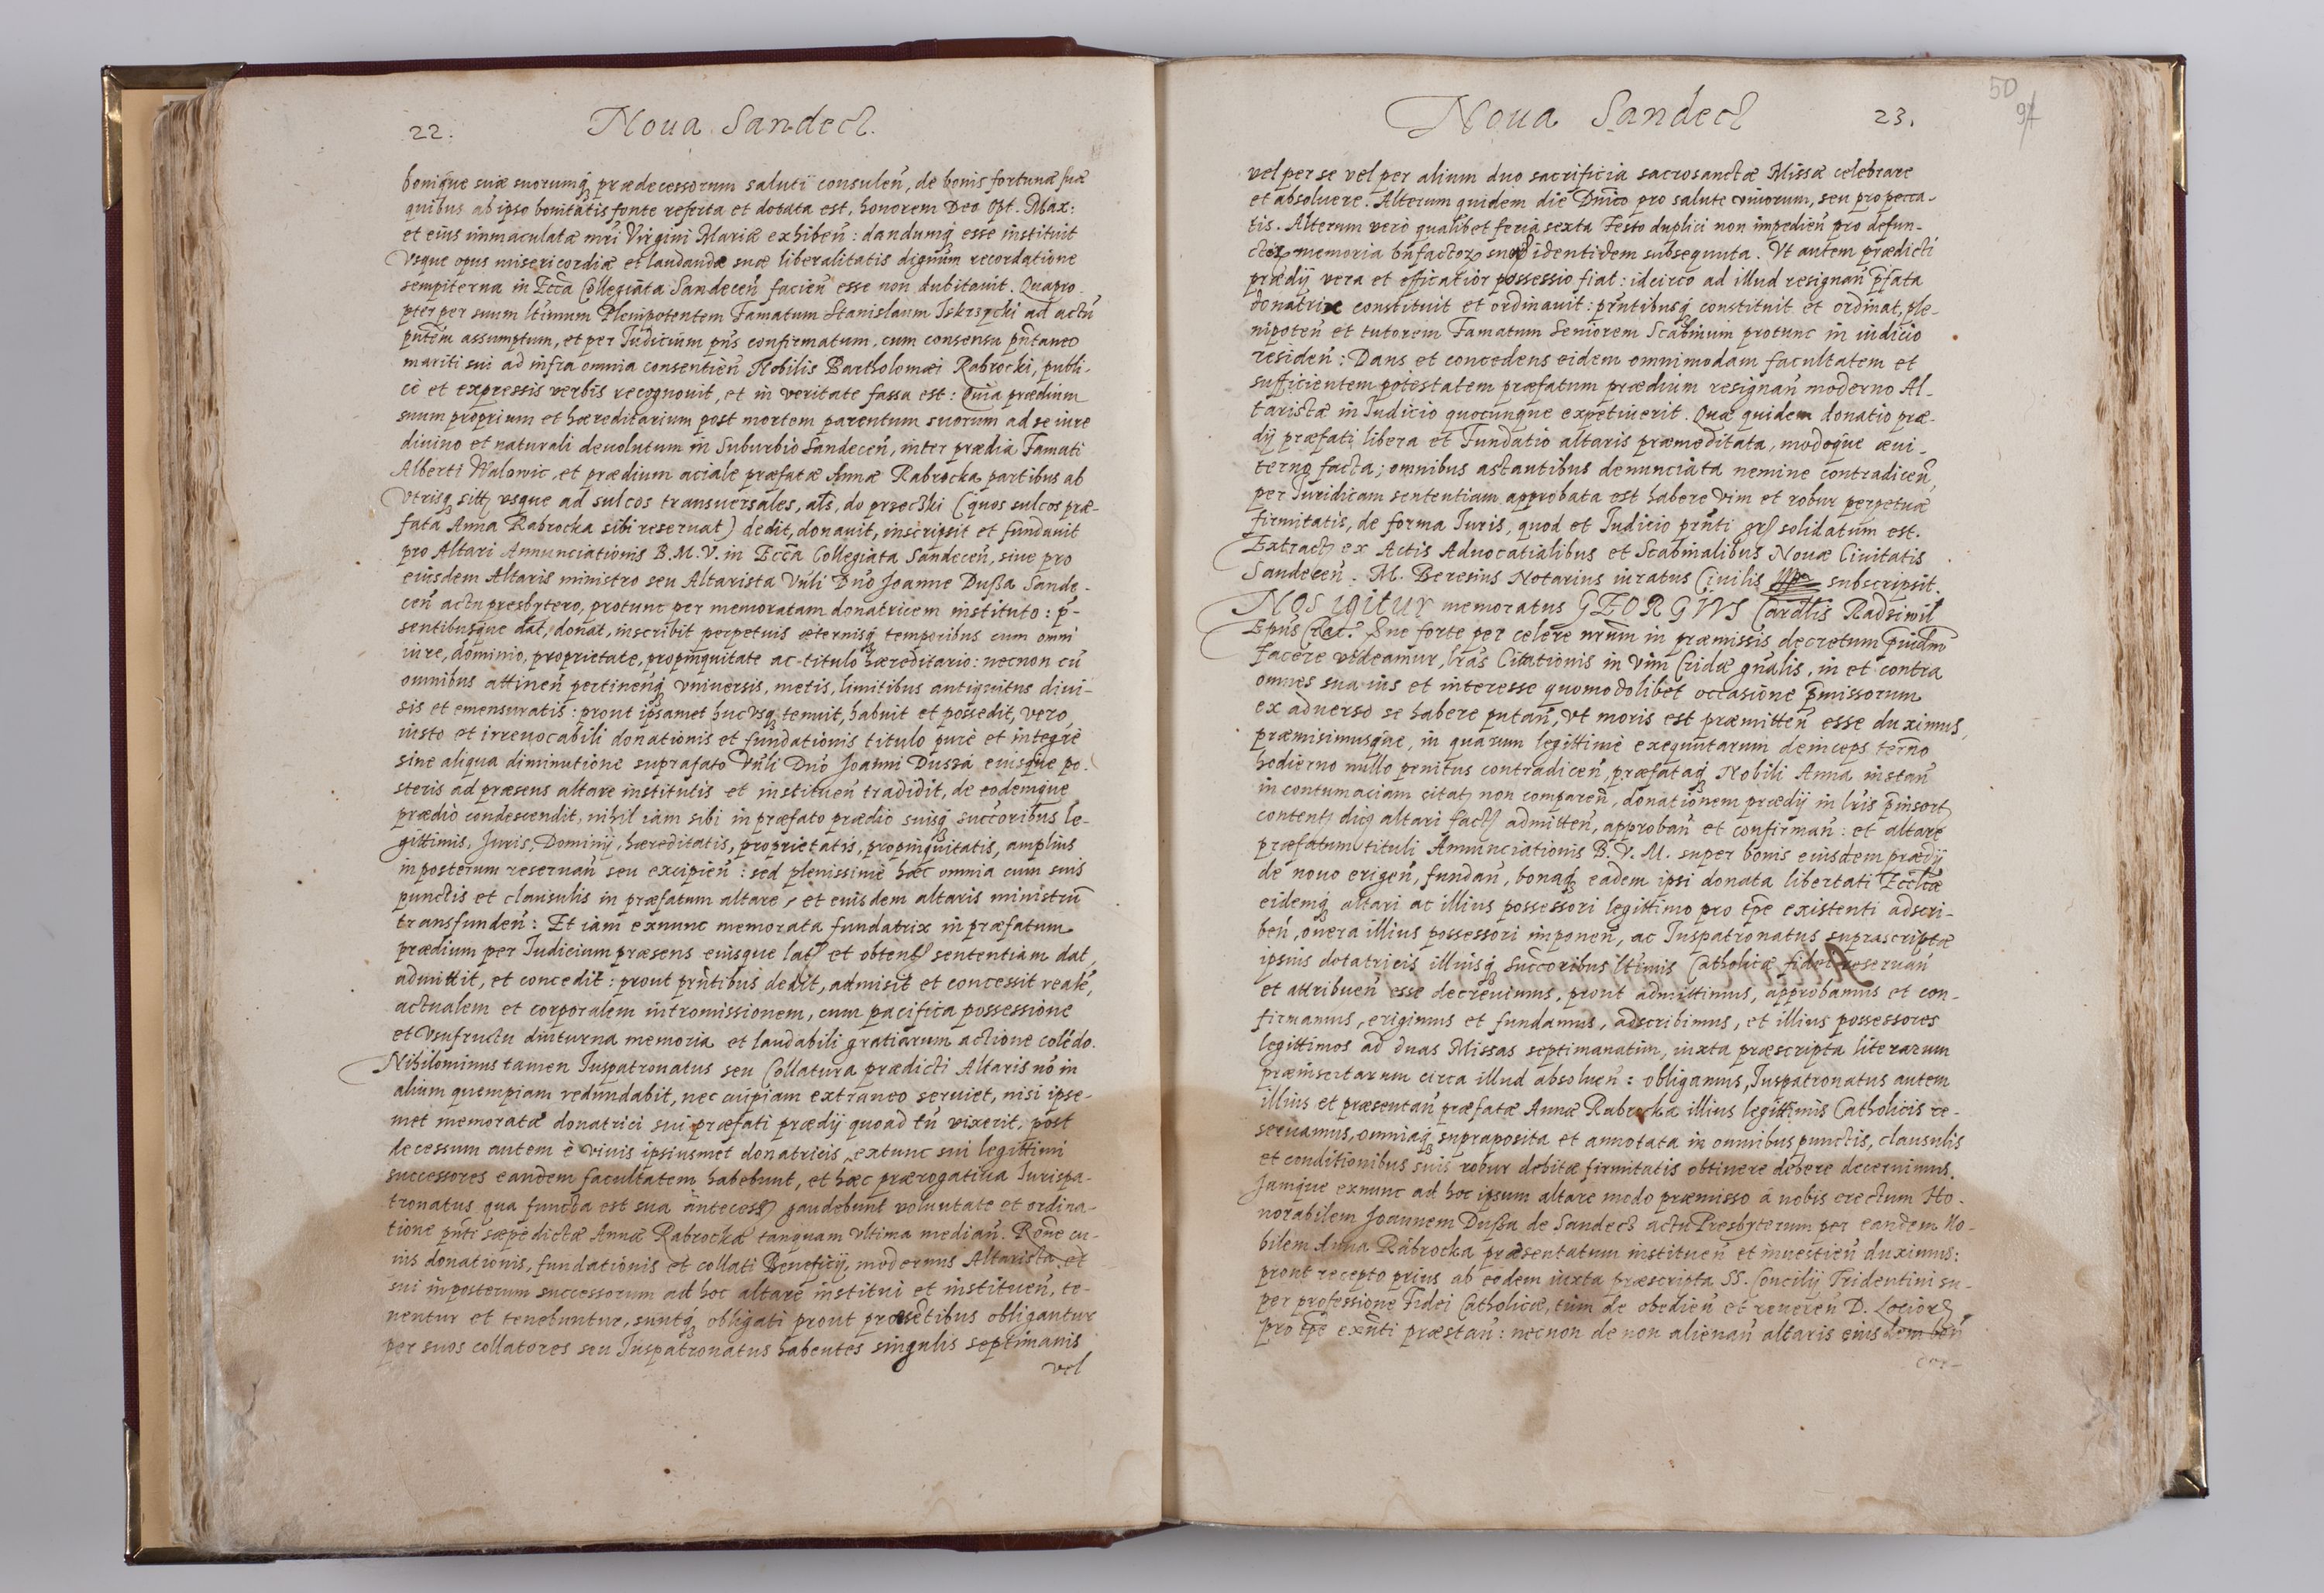 22.
Noua Sandecz.
bonique suæ suorumq prædecessorum saluti consulen, de bonis fortunæ suæ
quibus ab ipso bonitatis fonte referta et dotata est, honorem Deo Opt. Max:
et eius immaculatæ mri Virgini Mariæ exhiben: dandumq esse instituit
Vsque opus misericordiæ et laudandæ suæ liberalitatis dignum recordatione
sempiterna in Ecca Collegiata Sandecen facien esse non dubitauit. Quapro
pter per suum ltimum Plenipotentem Famatum Stanislaum Iskrzycki ad actu
pntem assumptum, et per Iudicium pns confirmatum, cum consensu pntaneo
mariti sui ad infra omnia consentien Nobilis Bartholomæi Rabrocki, publi-
cè et expressis verbis recognouit, et in veritate fassa est: Quia prædium
suum proprium et hæreditarium post mortem parentum suorum ad se iure
diuino et naturali deuolutum in Suburbio Sandecen, inter prædia Famati
Alberti Walowic, et prædium aciale præfatæ Annæ Rabrocka partibus ab
Vtrisq sitt vsque ad sulcos transuersales, als, do przecski (quos sulcos præ-
fata Anna Rabrocka sibi reseruat) dedit, donauit, inscripsit et fundauit
pro Altari Annunciationis B.M.V. in Ecca Collegiata Sandecen, siue pro
eiusdem Altaris ministro seu Altarista Vnli Dno Joanne Dußa Sande-
cen actu presbytero, protunc per memoratam donatricem instituto: p-
sentibusque dat, donat, inscribit perpetuis æternisq temporibus cum omni
iure, dominio, proprietate, propinquitate ac titulo hæreditario: necnon cu
omnibus attinen pertinenq vniuersis, metis, limitibus antiquitus diui-
sis et emensuratis: prout ipsamet hucVsq tenuit, habuit et possedit, vero
iusto et irreuocabili donationis et fundationis titulo purè et integrè
sine aliqua diminutione suprafato Vnli Dno Joanni Dussa eiusque po-
steris ad præsens altare institutis et instituen tradidit, de eodemque
prædio condescendit, nihil iam sibi in præfato prædio suisq succoribus le-
gittimis, Juris, Dominij, hæreditatis, proprietatis, propinquitatis, amplius
in posterum reseruan seu excipien: sed plenissimè hæc omnia cum suis
punctis et clausulis in præfatum altare, et eiusdem altaris ministru
transfunden: Et iam exnunc memorata fundatrix in præfatum
prædium per Iudicium præsens eiusque lat et obtent sententiam dat,
admittit, et concedit: prout prntibus dedit, admisit et concessit reale,
actualem et corporalem intromissionem, cum pacifica possessione
et Vsufructu diuturna memoria et laudabili gratiarum actione coledo.
Nihilominus tamen Iuspatronatus seu Collatura prædicti Altaris no in
alium quempiam redundabit, nec cuipiam extraneo seruiet, nisi ipse-
met memoratæ donatrici sui præfati prædij quoad tn vixerit, post
decessum autem è viuis ipsiusmet donatricis, extunc sui legittimi
successores eandem facultatem habebunt, et hæc prærogatiua Iurispa-
tronatus qua functa est sua antecess gaudebunt voluntate et ordina-
tione pnti sæpedictæ Annæ Rabrockæ tanquam vltima median. Rone cu-
ius donationis, fundationis et collati Beneficij, modernus Altarista et
sui in posterum successorum ad hoc altare institui et instituen, te-
nentur et tenebuntur, suntq obligati prout præsētibus obligantur
per suos collatores seu Iuspatronatus habentes singulis septimanis
vel
50
94
Noua Sandecz
23.
vel per se vel per alium duo sacrificia sacrosanctæ Missæ celebrare
et absoluere. Alterum quidem die Dnico pro salute viuorum, seu pro pecca-
tis. Alterum verò qualibet feria sexta Festo duplici non impedien pro defun-
ctor memoria bnfactor suor identidem subsequuta. Vt autem prædicti
prædij vera et efficatior possessio fiat: idcirco ad illud resignan pfata
donatrix constituit et ordinauit: prntibusq constituit et ordinat, ple-
nipoten et tutorem Famatum Seniorem Scabinum protunc in iudicio
residen: Dans et concedens eidem omnimodam facultatem et
sufficientem potestatem præfatum prædium resignan moderno Al-
taristæ in Iudicio quocunque expetiuerit. Quæ quidem donatio præ-
dij præfati libera et Fundatio altaris præmeditata, modoque æui-
terno facta; omnibus astantibus denunciata nemine contradicen,
per Iuridicam sententiam approbata est habere vim et robur perpetuæ
firmitatis, de forma Iuris, quod et Iudicio prnti solidatum est.
Extract ex Actis Aduocatialibus et Scabinalibus Nouæ Ciuitatis
Sandecen. M. Beresius Notarius iuratus Ciuilis subscripsit.
Nos igitur memoratus GEORGIVS Cardlis Radziwil
Epus Crac. Ene forte per celere nrum in præmissis decretum
facere videamur, lras Citationis in vim Cridæ gnalis, in et contra
omnes sua ius et interesse quomodolibet occasione pmissorum
ex aduerso se habere putan, vt moris est præmitten esse duximus,
præmisimusque, in quarum legittimè exequutarum deinceps terno
hodierno nullo penitus contradicen, præfataq Nobili Anna instan
in contumaciam citat non comparen, donationem prædij in lris pinsert
content dict altari fact admitten, approban et confirman: et altare
præfatum tituli Annunciationis B.V.M. super bonis eiusdem prædij
de nouo erigen, fundan, bonaq eadem ipsi donata libertati Eccliæ
eidemq altari ac illius possessori legittimo pro tpe existenti adscri-
ben, onera illius possessori imponen, ac Iuspatronatus suprascriptæ
ipsius dotatricis illiusq succoribus ltimis Catholicæ fidei reseruan
et attribuen esse decreuimus, prout admittimus, approbamus et con-
firmamus, erigimus et fundamus, adscribimus, et illius possessores
legittimos ad duas Missas septimanatim, iuxta præscripta literarum
præinsertarum circa illud absoluen: obligamus, Iuspatronatus autem
illius et præsentan præfatæ Annæ Rabrocka illius legittimis Catholicis re-
seruamus, omniaq supraposita et annotata in omnibus punctis, clausulis
et conditionibus suis robur debitæ firmitatis obtinere debere decernimus.
Jamque exnunc ad hoc ipsum altare modo præmisso à nobis erectum Ho-
norabilem Joannem Dußa de Sandecz actu Presbyterum per eandem No-
bilem Anna Rabrocka præsentatum instituen et inuestien duximus:
prout recepto prius ab eodem iuxta præscripta SS. Concilij Tridentini su-
per professione Fidei Catholicæ, tum de obedien et reueren D. Locior
pro tpe exnti præstan: necnon de non alienan altaris eiusdem bon